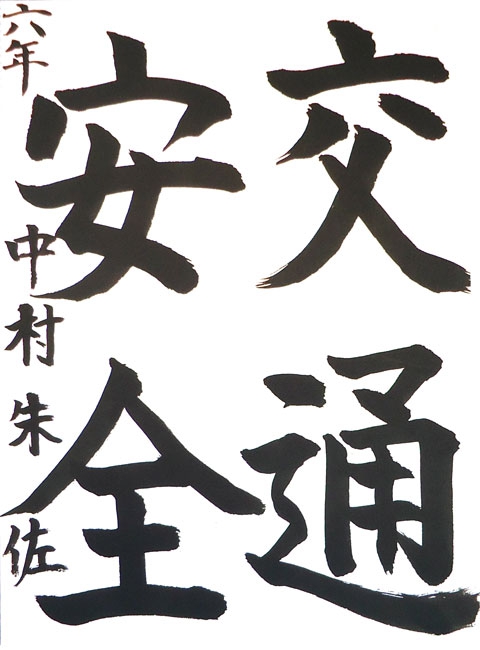 交通
安全
六年 中村朱佐